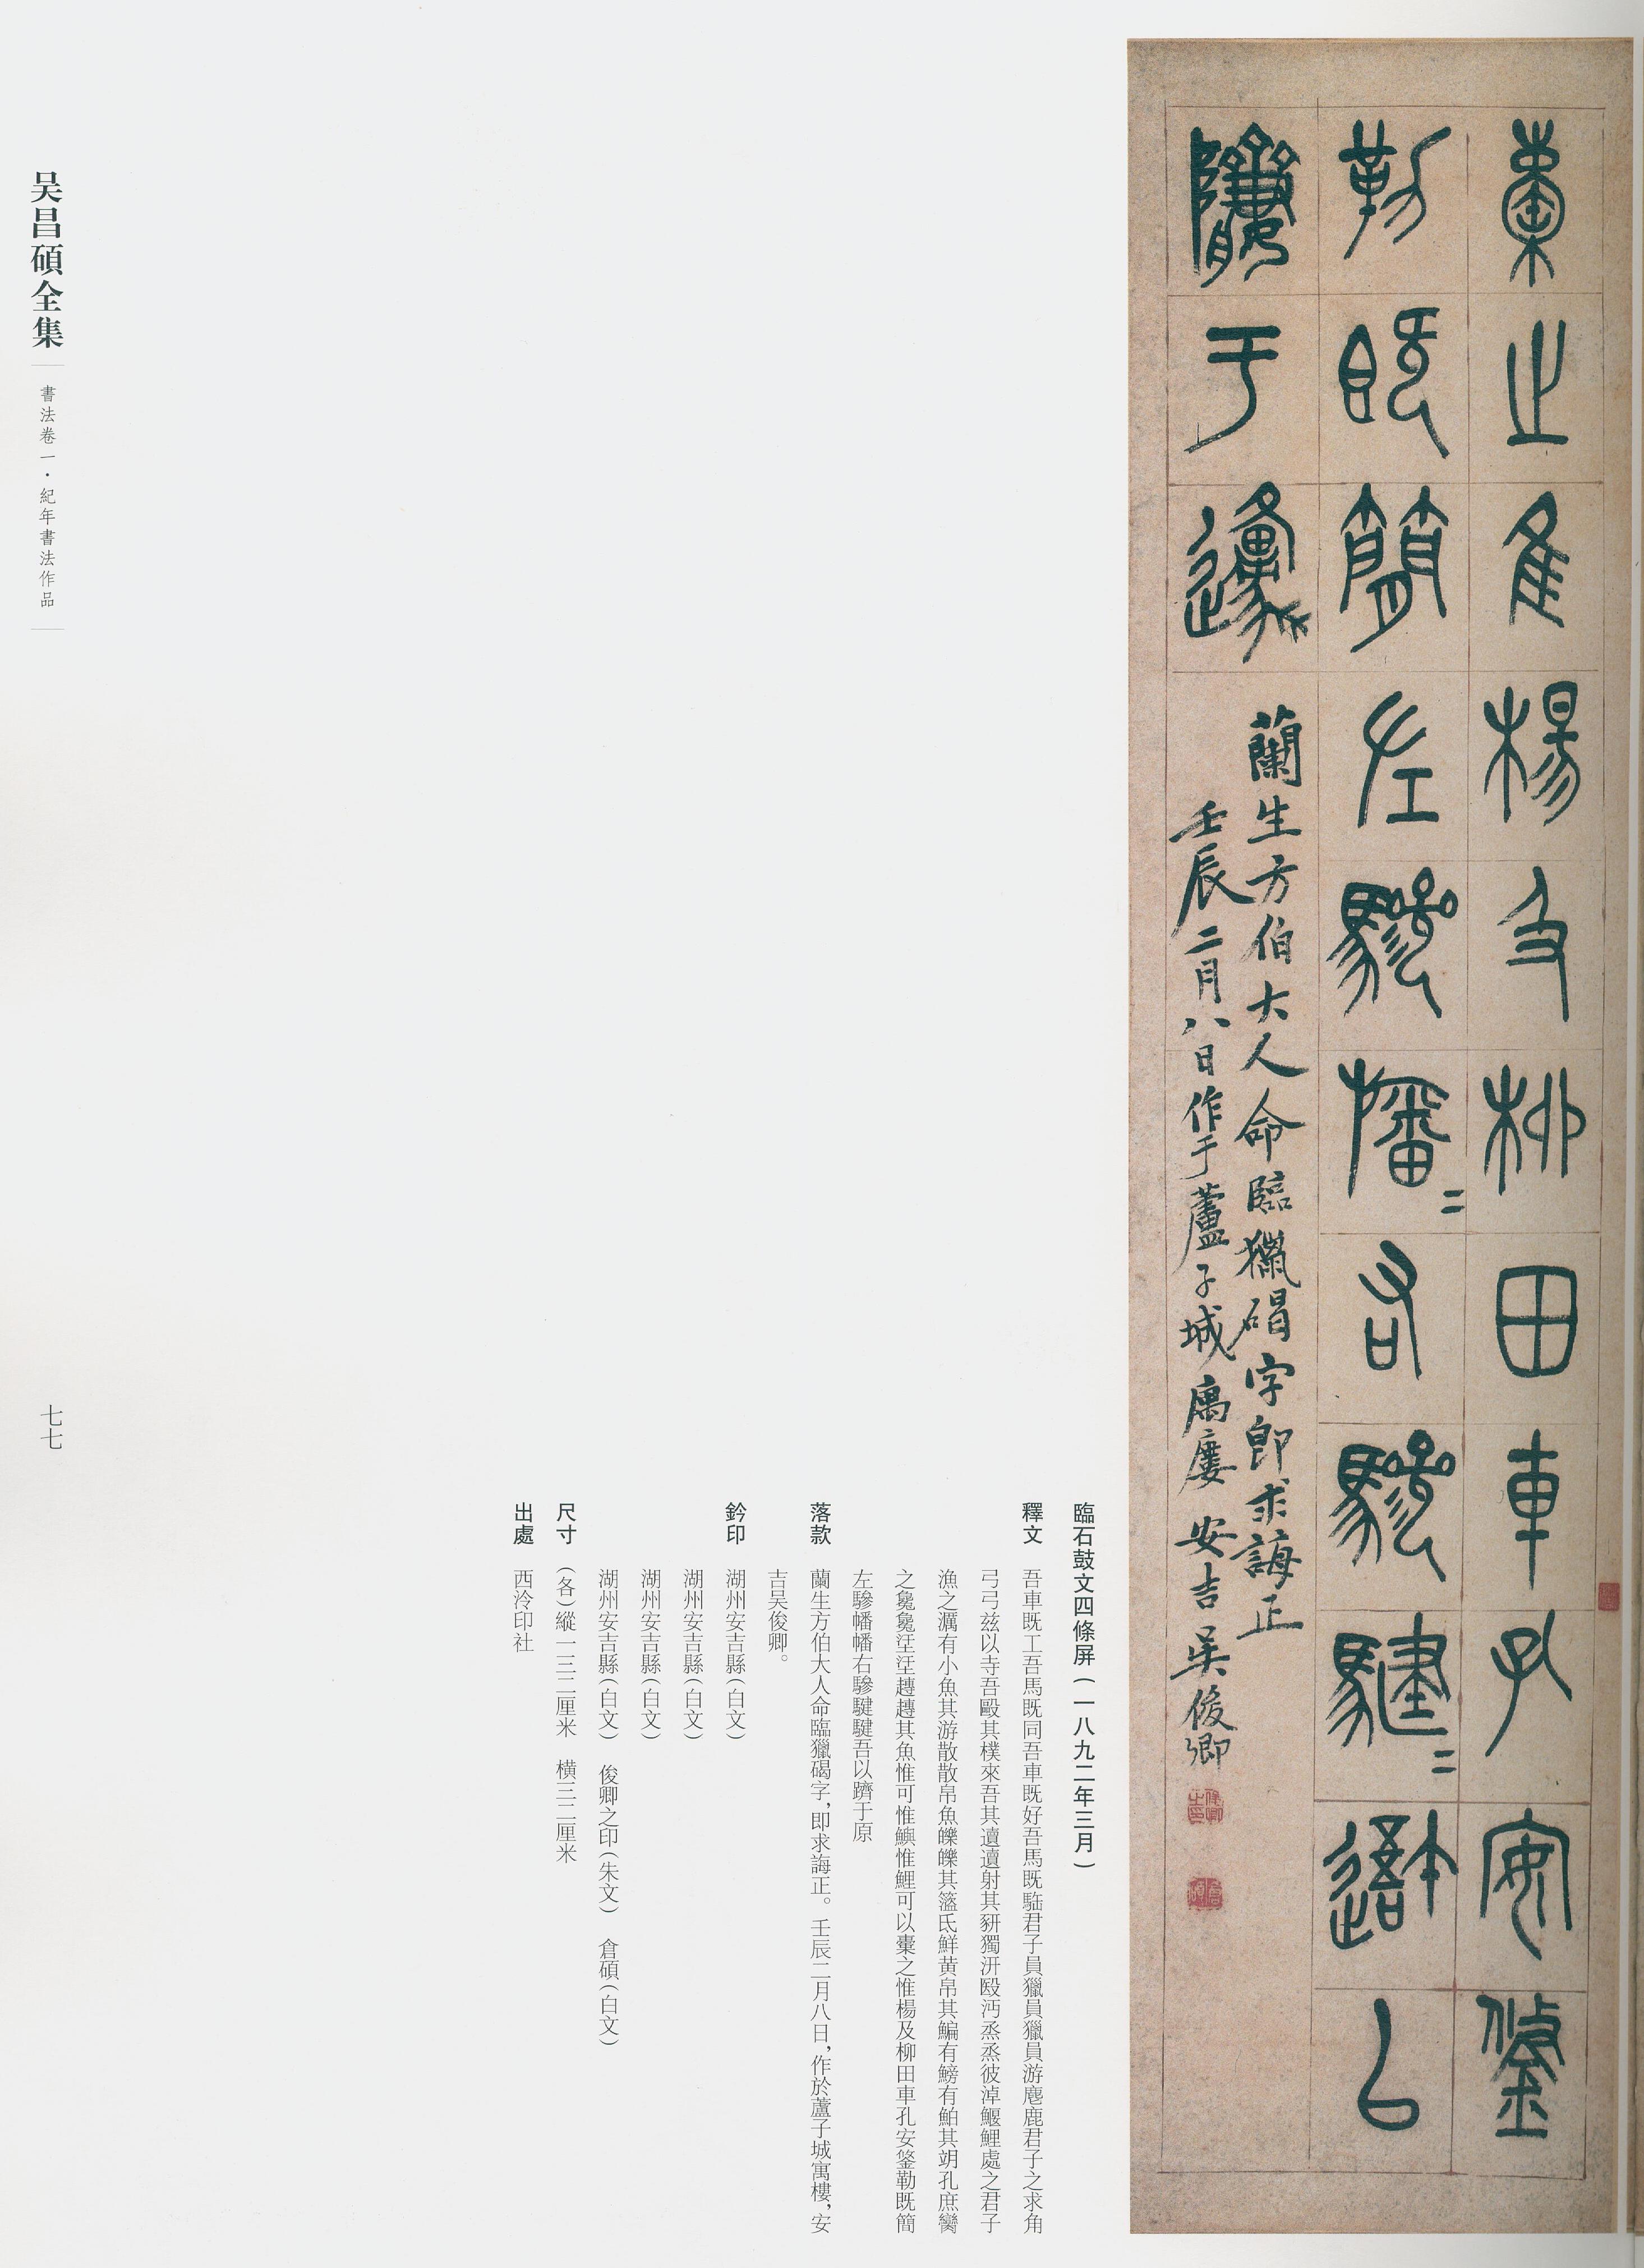 橐之隹楊及柳田車孔安鋚
勒既簡左驂幡=右驂騝=䢸以
隮于邍
蘭生方伯大人命臨獵碣字即求誨正
壬辰二月八日作于蘆子城寓廔 安吉吴俊卿
俊卿之印
倉碩
臨石鼓文四條屏（一八九二年三月）
釋文 吾車既工吾馬既同吾車既好吾馬既駘君子員獵員獵員游麀鹿君子之求角
弓弓兹以寺吾毆其樸來吾其遺遺射其豜獨汧殹沔烝烝彼淖鰋鯉處之君子
漁之澫有小魚其游散散帛魚皪皪其籃氐鮮黄帛其鯿有鰟有鮊其胡孔庶臠
之毚毚汪汪趭趭其魚惟可惟鱮惟鯉可以橐之惟楊及柳田車孔安鋚勒既簡
左驂幡幡右驂騝騝吾以隮于原
落款 蘭生方伯大人命臨獵碣字，即求誨正。壬辰二月八日，作於蘆子城寓樓，安
吉吴俊卿。
鈐印 湖州安吉縣（白文）
湖州安吉縣（白文）
湖州安吉縣（白文）
湖州安吉縣（白文） 俊卿之印（朱文） 倉碩（白文）
尺寸 （各）縱一三二厘米 横三二厘米
出處 西泠印社
吴昌碩全集
書法卷一·紀年書法作品
七七